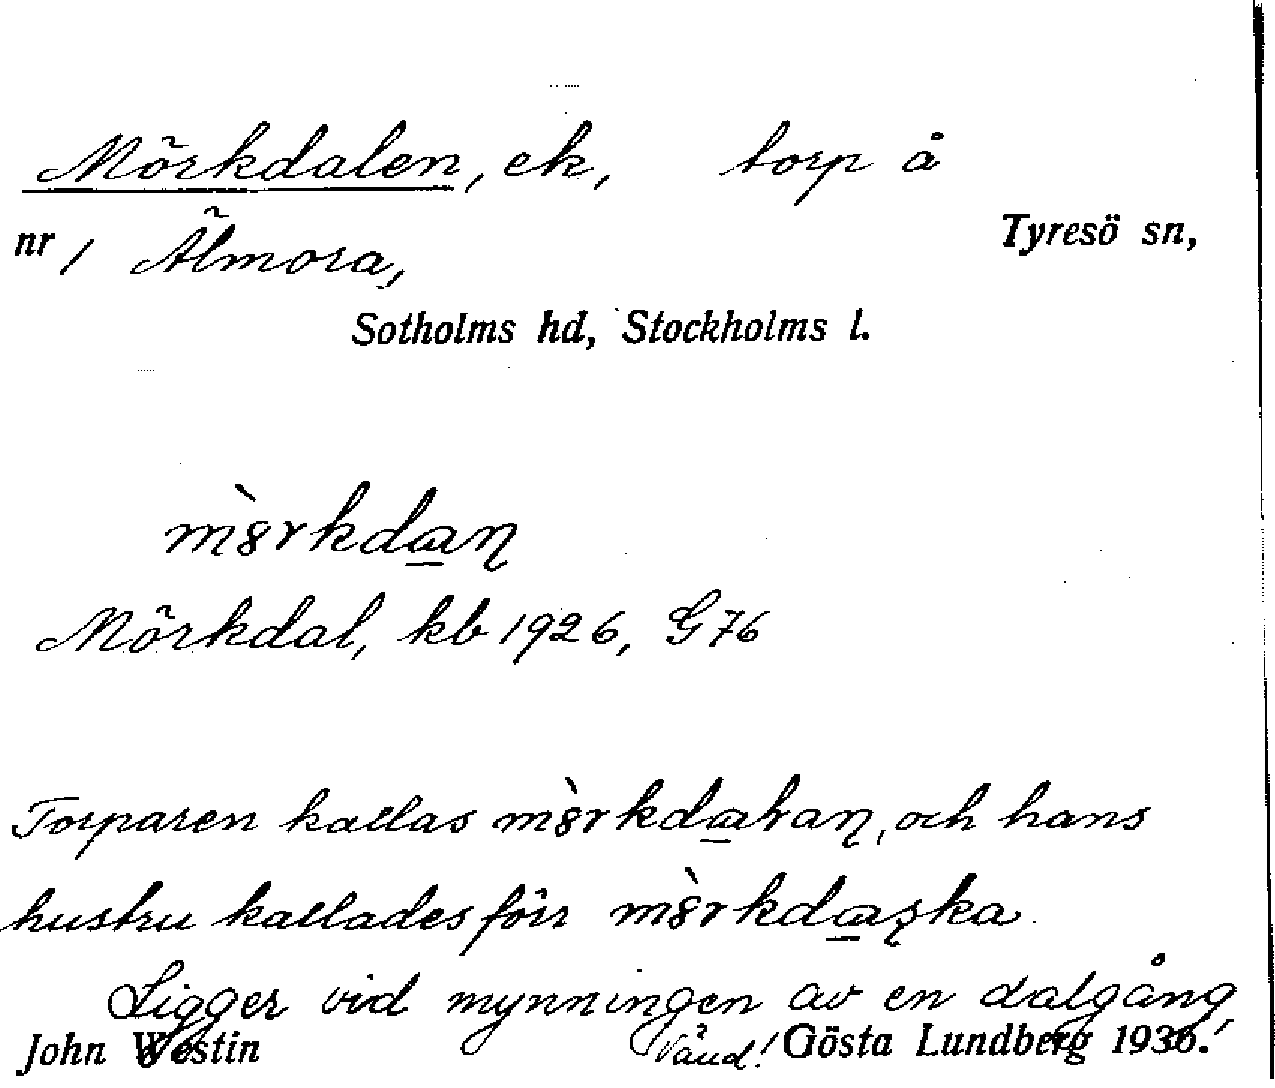 Mörkdalen, ek, torp å
nr 1 Älmora, Tyresö sn,
Sotholms hd, Stockholms l.
Mörkdal, kb 1926, G 76
Torparen kallas och hans
hustru kallades förr
Ligger vid mynningen av en dalgång,
John Westin Vänd! Gösta Lundberg 1936.